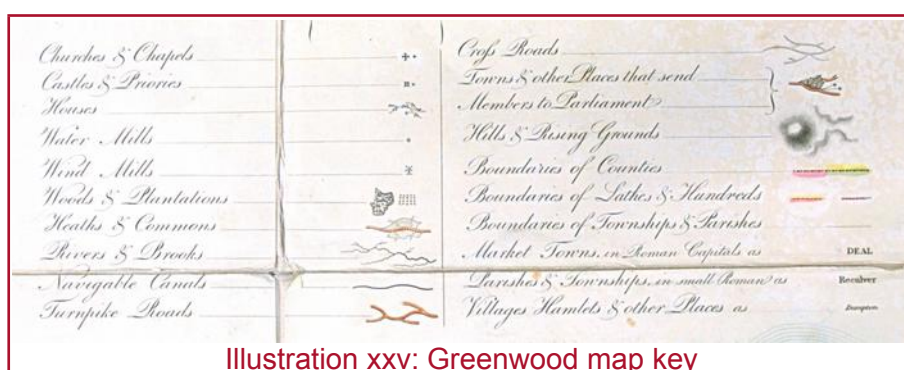 Churches & Chapels
Castles & Priories
Houses
Water Mills
Wind Mills
Woods & Plantations
Heaths & Commons
Rivers & Brooks
Navigable Canals
Turnpike Roads
Cross Roads
Towns & other Places that send
Members to Parliament
Hills & Rising Grounds
Boundaries of Counties
Boundaries of Lathes & Hundreds
Boundaries of Townships & Parishes
Market Towns, in Roman Capitals as DEAL
Parishes & Townships, in small Roman as Reculver
Villages Hamlets & other Places as
Illustration xxv: Greenwood map key